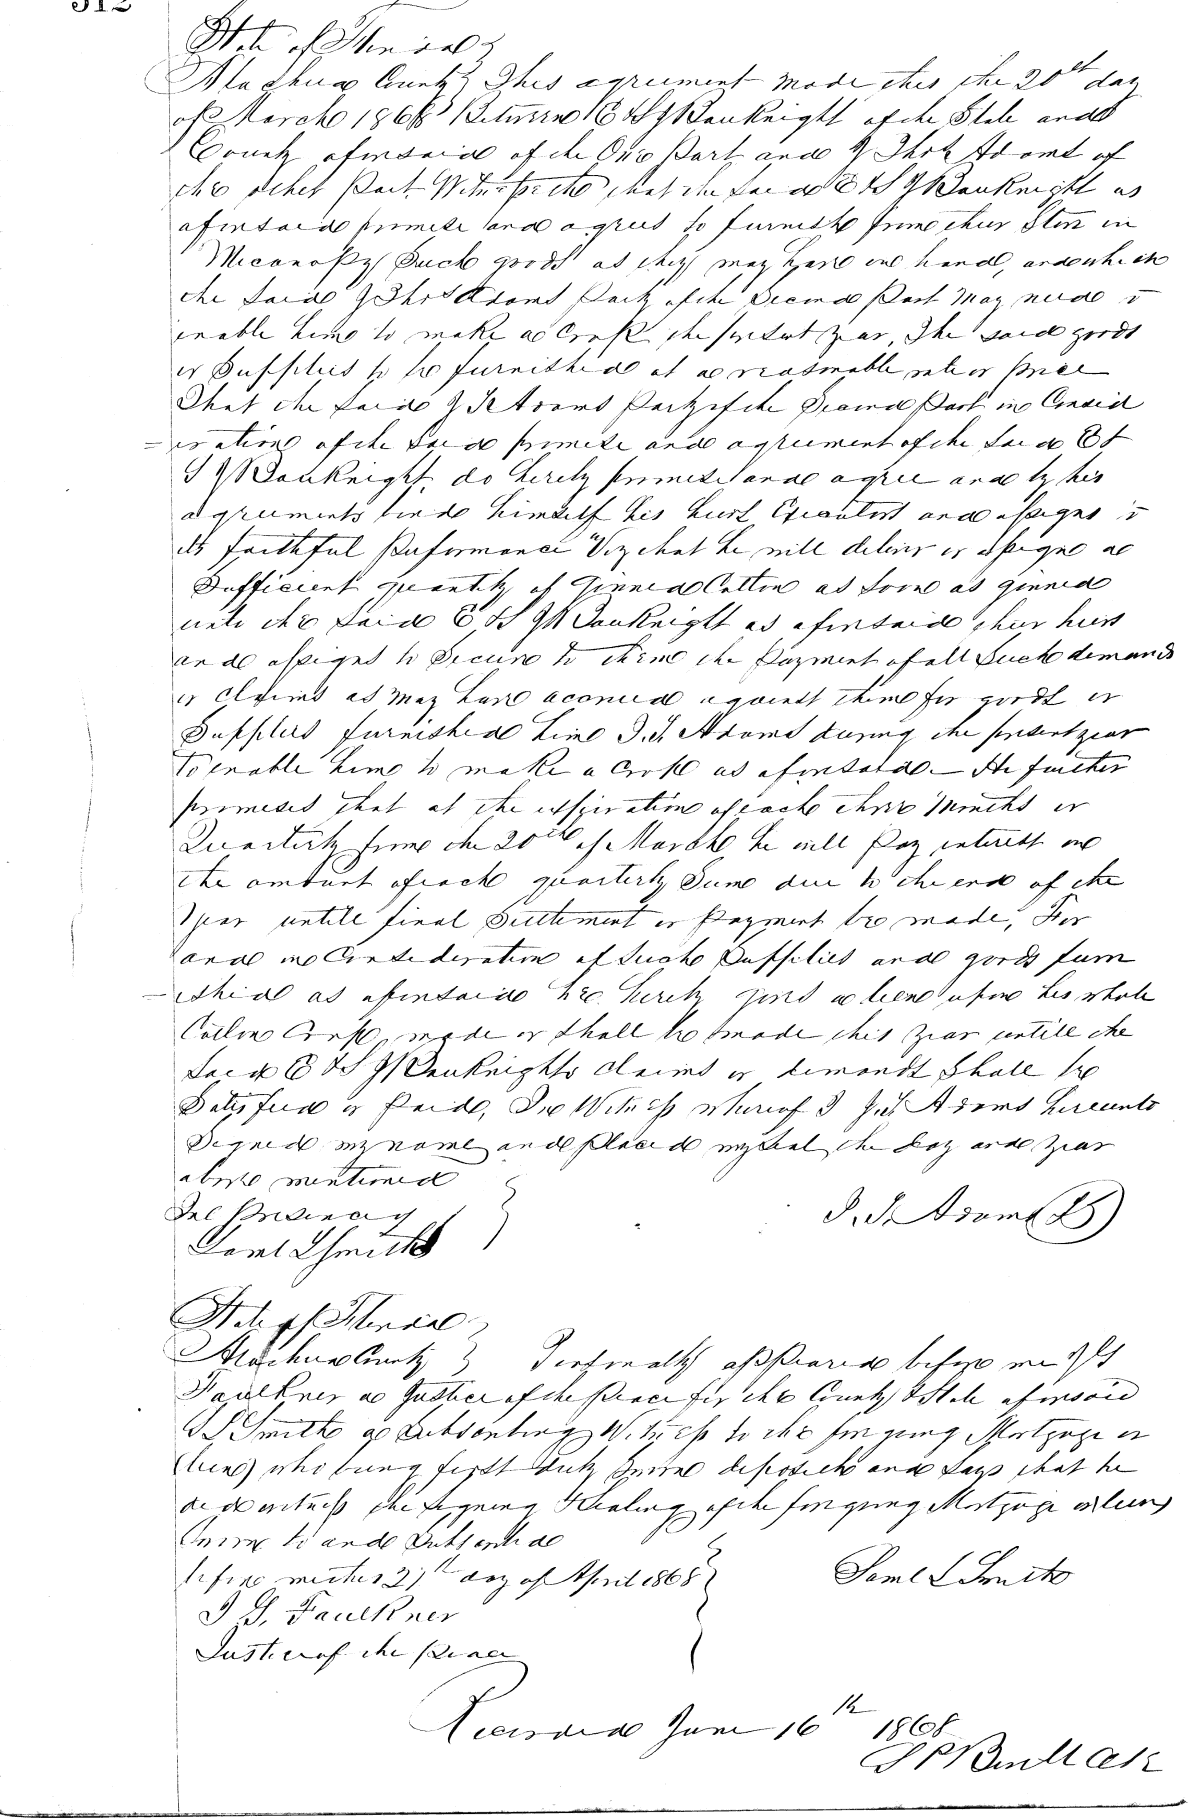 312
State of Florida
Alachua County This agreement made this the 20th day
of March 1868 Between E & S J Bauknight of the State and
County aforesaid of the One Part and J Thos Adams of
the other Part. Witnesseth that the said E & S J Bauknight as
aforesaid promise and agrees to furnish from their Store in
Micanopy Such goods as they may have on hand, and which
the Said J Thos Adams Party of the Second Part May need to
enable him to make a Crop the present year, The said goods
or Supplies to be furnished at a reasonable rate or price
That the Said J T Adams Party of the Second Part in Consid
=eration of the Said promise and agreement of the Said E &
S J Bauknight, do hereby promise and agree and by his
agreements bind himself his heirs Executors and assigns to
its faithful Performance Viz that he will deliver or assigne a
Sufficient quantity of Ginned Cotton as Soon as ginned
unto the Said E & S J Bauknight as aforesaid their heirs
and assigns to Secure to them the Payment of all Such demands
or claims as may have accrued against them for goods or
Supplies furnished him J.T. Adams during the present year
to enable him to make a Crop as aforesaid. — He further
promises that at the expiration of each three Months or
Quarterly from the 20th of March he will Pay interest on
the amount of each quarterly Sum due to the end of the
Year untill final Settlement or Payment be made, For
and in Consideration of Such Supplies and goods furn
=ished as aforesaid he hereby gives a lien upon his whole
Cotton Crop, made or Shall be made this year untill the
Said E & S J Bauknights claims or demands Shall be
Satisfied or Paid, In Witness whereof I J.T. Adams hereunto
Signed my name and placed my Seal the day and year
above mentioned
In Presence of
Saml L Smith
J. T. Adams (LS)
State of Florida
Alachua County Personally appeared before me J S
Faulkner a Justice of the Peace for the County & State aforesaid
S L Smith a Subscribing Witness to the foregoing Mortgage or
(lien) who being first duly Sworn deposeth and Says that he
did witness the Signing & Sealing of the foregoing Mortgage or lien
Sworn to and Subscribed
before me this 27th day of April 1868
Saml L Smith
J S. Faulkner
Justice of the Peace
Recorded June 16th 1868
Clk